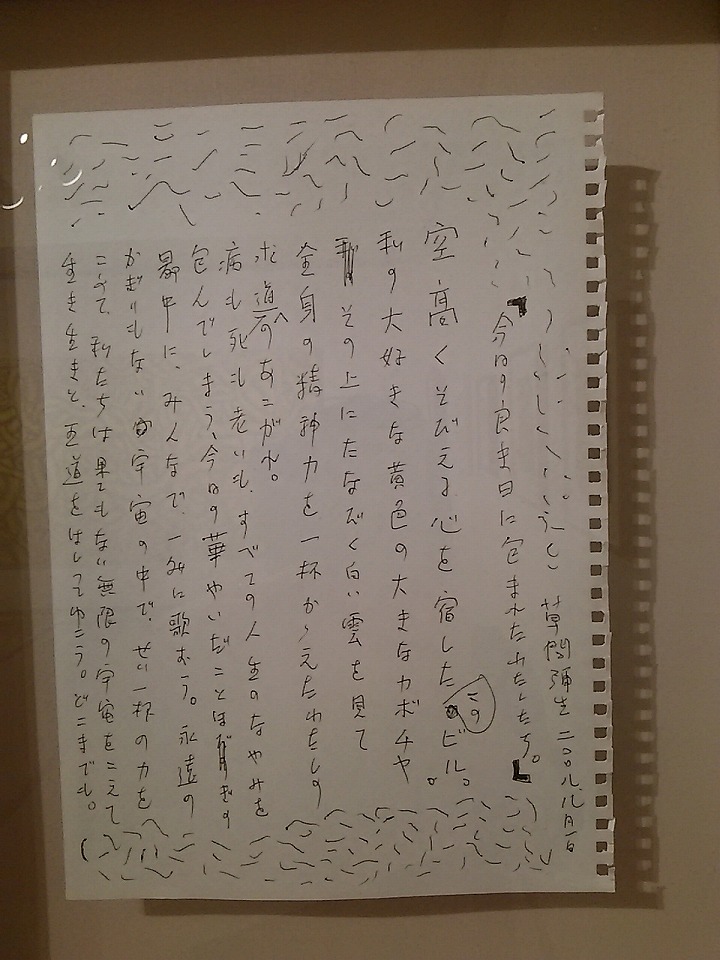 草間彌生 二〇〇八、八月一日
「今日の良き日に包まれたわたしたち。」
空高くそびえる心を宿したこのビル。
私の大好きな黄色の大きなカボチャ
その上にたなびく白い雲を見て
全身の精神力を一杯かゝえたわたしの
求道へのあこがれ。
病も死も老いも、すべての人生のなやみを
包んでしまう、今日の華やいだことほぎの
最中に、みんなで、歌おう。永遠の
かぎりもない宇宙の中で、せい一杯の力を
こめて、私たちは果てもない無限の宇宙をこえて
生き生きと、王道をはしってゆこう。どこまでも。